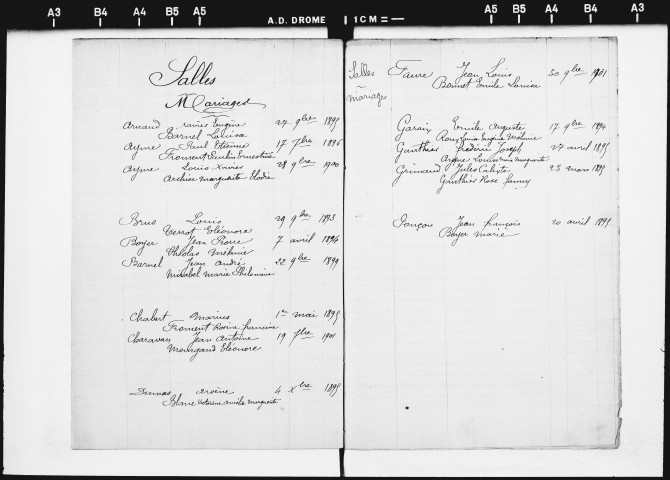 A3 B4 A4 B5 A5 A.D. DROME 1CM A5 B5 A4 B4 A3
Salles
Mariages
Arnaud Xavier Eugène 27 9bre 1895
Barnel Louisa
Ayme Paul Etienne 17 7bre 1896
Froment
Ayme Louis Xavier 28 9bre 1900
Archier Marguerite Elodie
Brus Louis 29 9bre 1893
Terrot Eléonore
Boyer Jean Pierre 7 avril 1894
Mélanie
Barnel Jean André 22 9bre 1899
Mirabel Marie Philomène
Chabert Marius 1er mai 1895
Froment Rosine francine
Charavan Jean Antoine 19 7bre 1901
Mourgaud Eléonore
Dumas Arsène 4 xbre 1895
Blanc Victorine amélie marguerite
Salles
mariages
Faure Jean Louis 30 9bre 1901
Bonnet Emilie Louisa
Garaix Emile Auguste 17 9bre 1894
Roux Louise Eugénie Mélanie
Gauthier Frédéric Joseph 27 avril 1895
Marguerite
Grimaud Jules Calixte 23 mars 1895
Gauthier Rose fanny
Jean françois 20 avril 1895
Boyer Marie